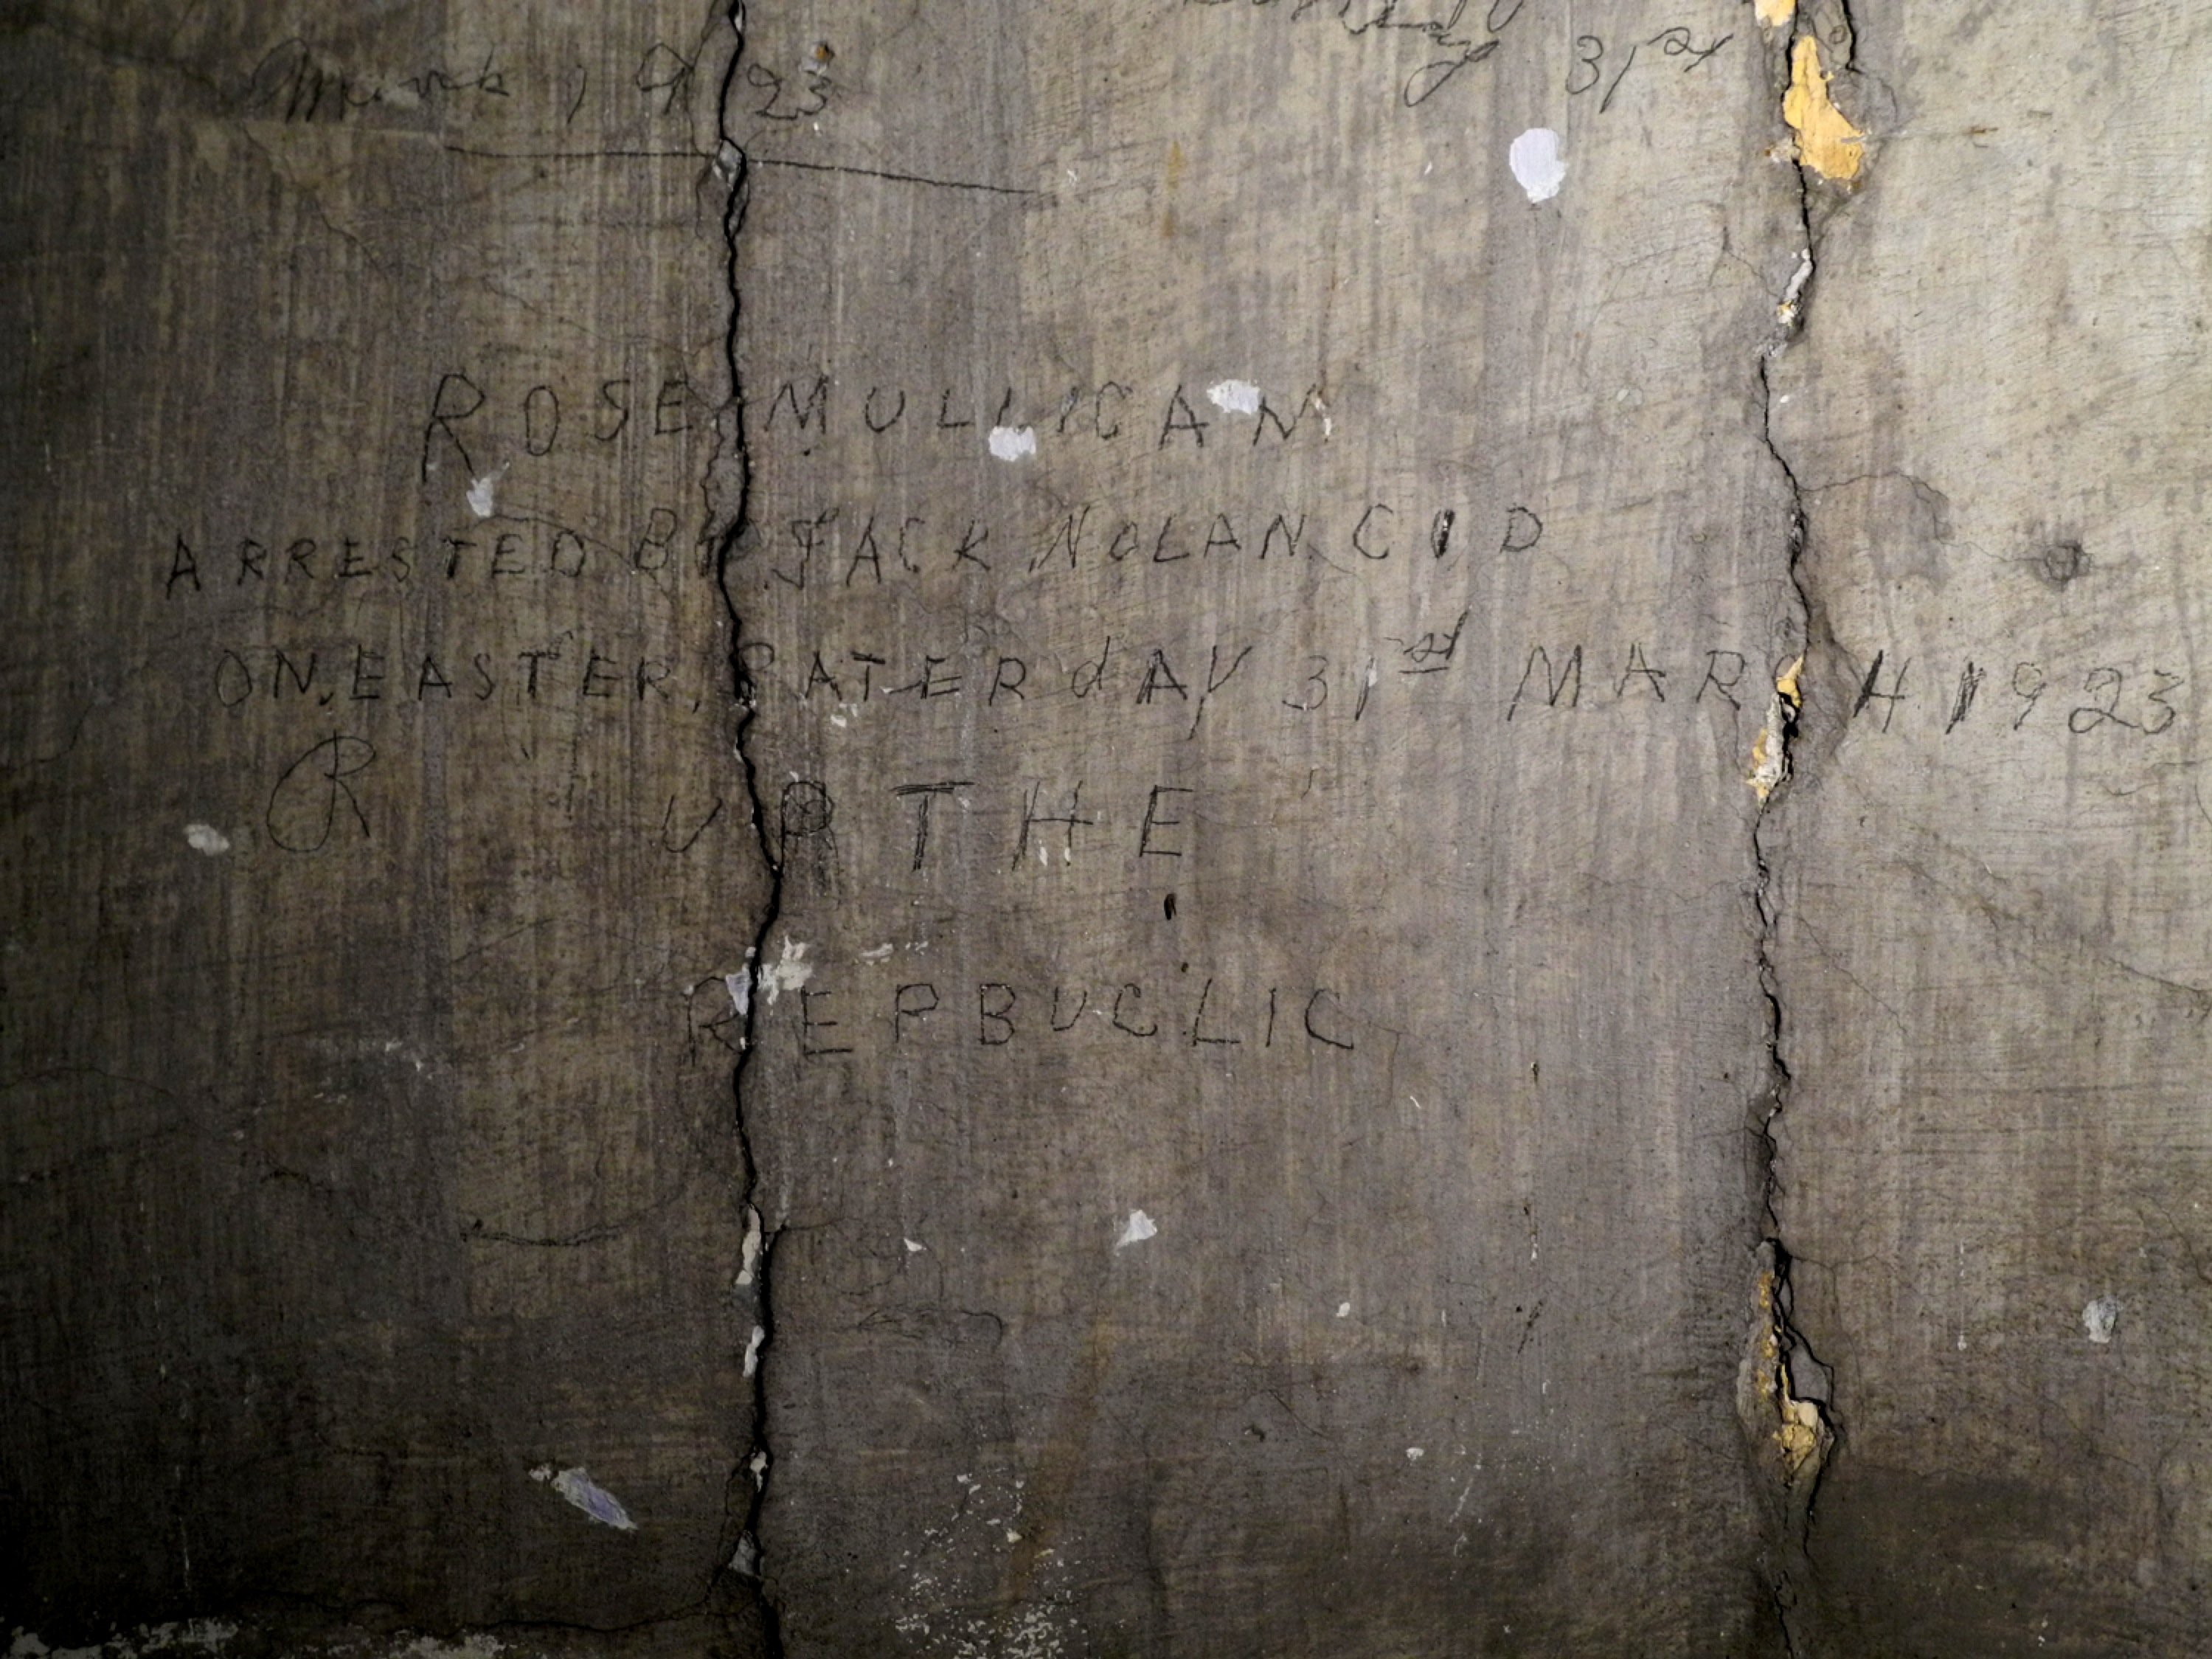 31st
March 1923
ROSE MULLICAN
ARRESTED BY JACK NOLAN CID
ON EASTER SATERdAY 31st MARCH 1923
R UP THE
REPBUCLIC